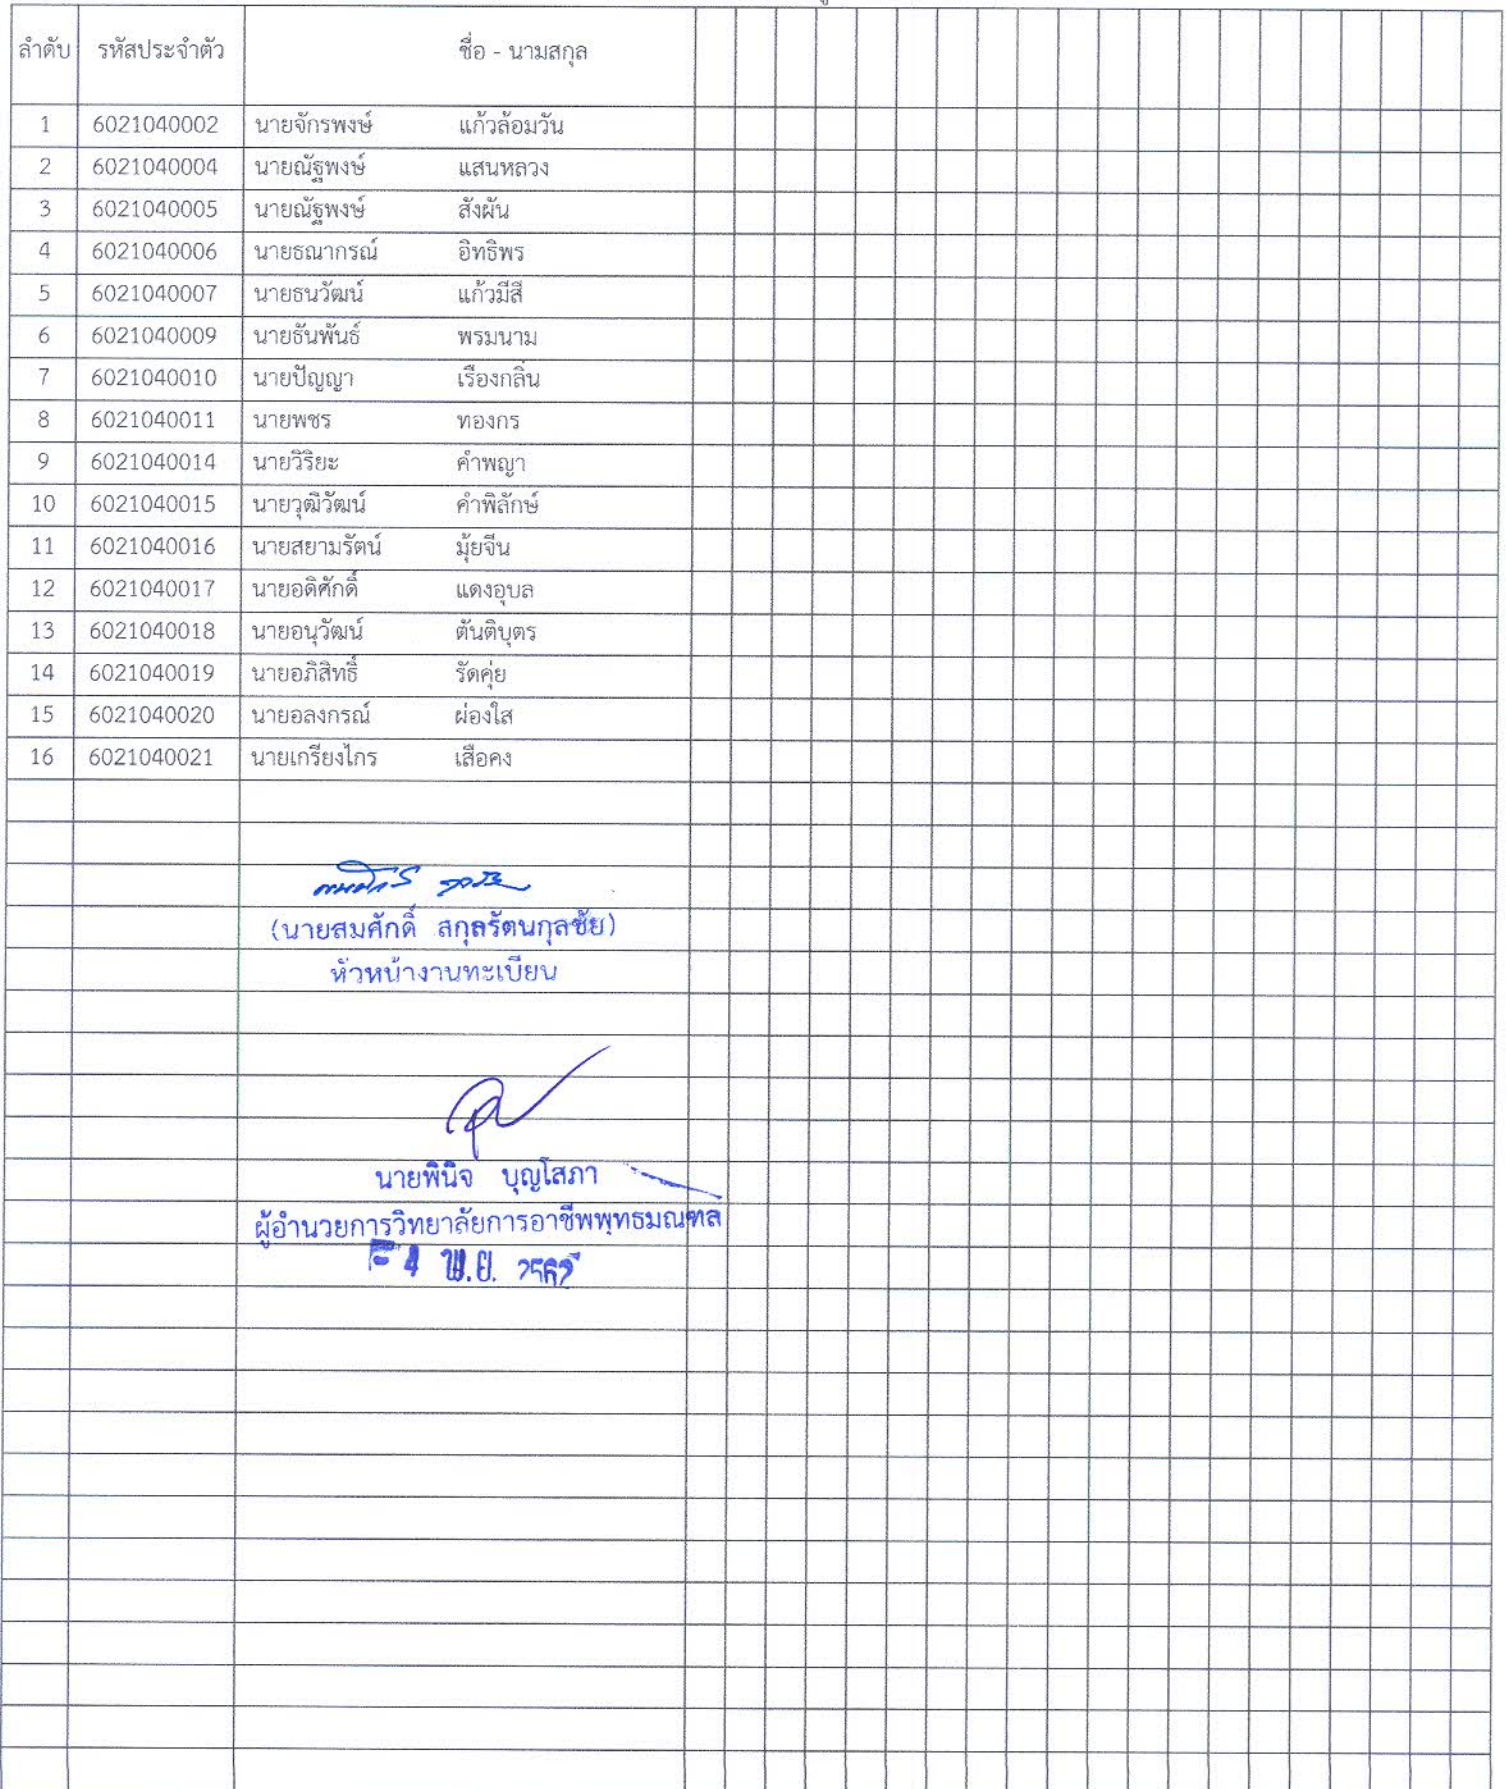 ลำดับ รหัสประจำตัว ชื่อ - นามสกุล
1 6021040002 นายจักรพงษ์ แก้วล้อมวัน
2 6021040004 นายณัฐพงษ์ แสนหลวง
3 6021040005 นายณัฐพงษ์ สังผัน
4 6021040006 นายธณากรณ์ อิทธิพร
5 6021040007 นายธนวัฒน์ แก้วมีสี
6 6021040009 นายธันพันธ์ พรมนาม
7 6021040010 นายปัญญา เรืองกลิ่น
8 6021040011 นายพชร ทองกร
9 6021040014 นายวิริยะ คำพญา
10 6021040015 นายวุฒิวัฒน์ คำพิลักษ์
11 6021040016 นายสยามรัตน์ มุ้ยจีน
12 6021040017 นายอดิศักดิ์ แดงอุบล
13 6021040018 นายอนุวัฒน์ ตันติบุตร
14 6021040019 นายอภิสิทธิ์ รัดคุ่ย
15 6021040020 นายอลงกรณ์ ผ่องใส
16 6021040021 นายเกรียงไกร เสือคง
(นายสมศักดิ์ สกุลรัตนกุลชัย)
หัวหน้างานทะเบียน
นายพินิจ บุญโสภา
ผู้อำนวยการวิทยาลัยการอาชีพพุทธมณฑล
4 พ.ย. 2562